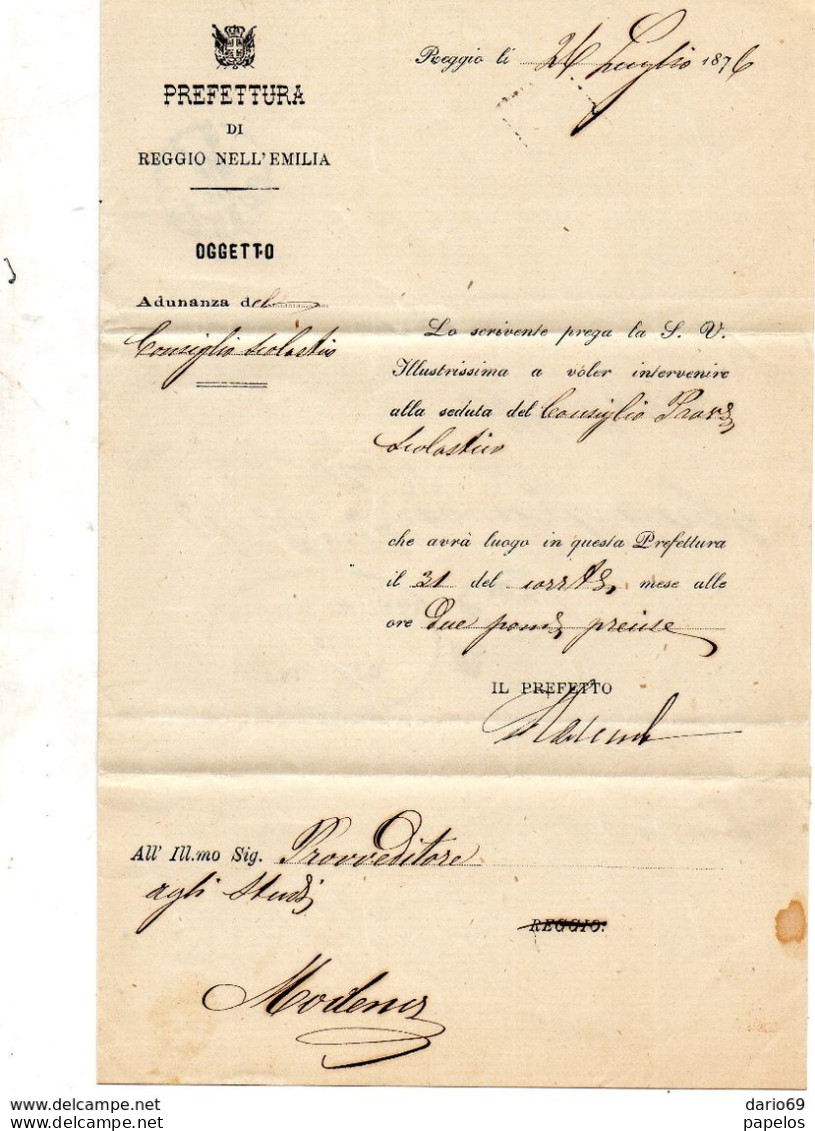 PREFETTURA
DI
REGGIO NELL'EMILIA
Reggio li 26 Luglio 1876
OGGETTO
Adunanza del
Consiglio scolastico
Lo scrivente prega la S. V.
Illustrissima a voler intervenire
alla seduta del Consiglio Prov
Scolastico
che avrà luogo in questa Prefettura
il 31 del corrte mese alle
ore Due pomd precise
IL PREFETTO
All' Ill.mo Sig. Provveditore
agli Studi
REGGIO.
Modena
More sizes on www.delcampe.net
dario69
papelos